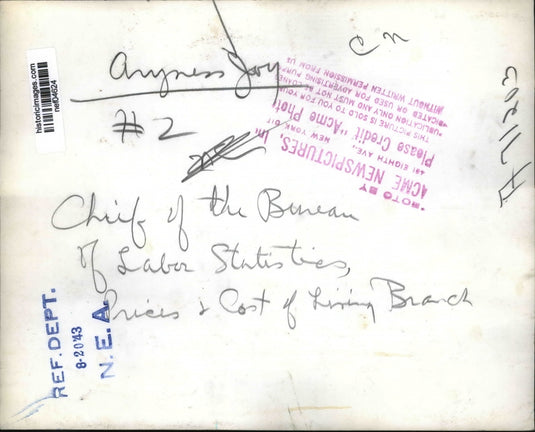 historicimages.com
nef04624
Aryness Joy
#2
C N
PHOTO BY
ACME NEWSPICTURES, Inc.
461 EIGHTH AVE., NEW YORK CITY
Please Credit "Acme Photo"
THIS PICTURE IS SOLD TO YOU FOR YOUR
PUBLICATION ONLY AND MUST NOT
OR USED FOR ADVERTISING
WITHOUT WRITTEN PERMISSION FROM US
71203
Chief of the Bureau
of Labor Statistics,
Prices & Cost of Living Branch
REF. DEPT.
8-20 43
N. E. A.